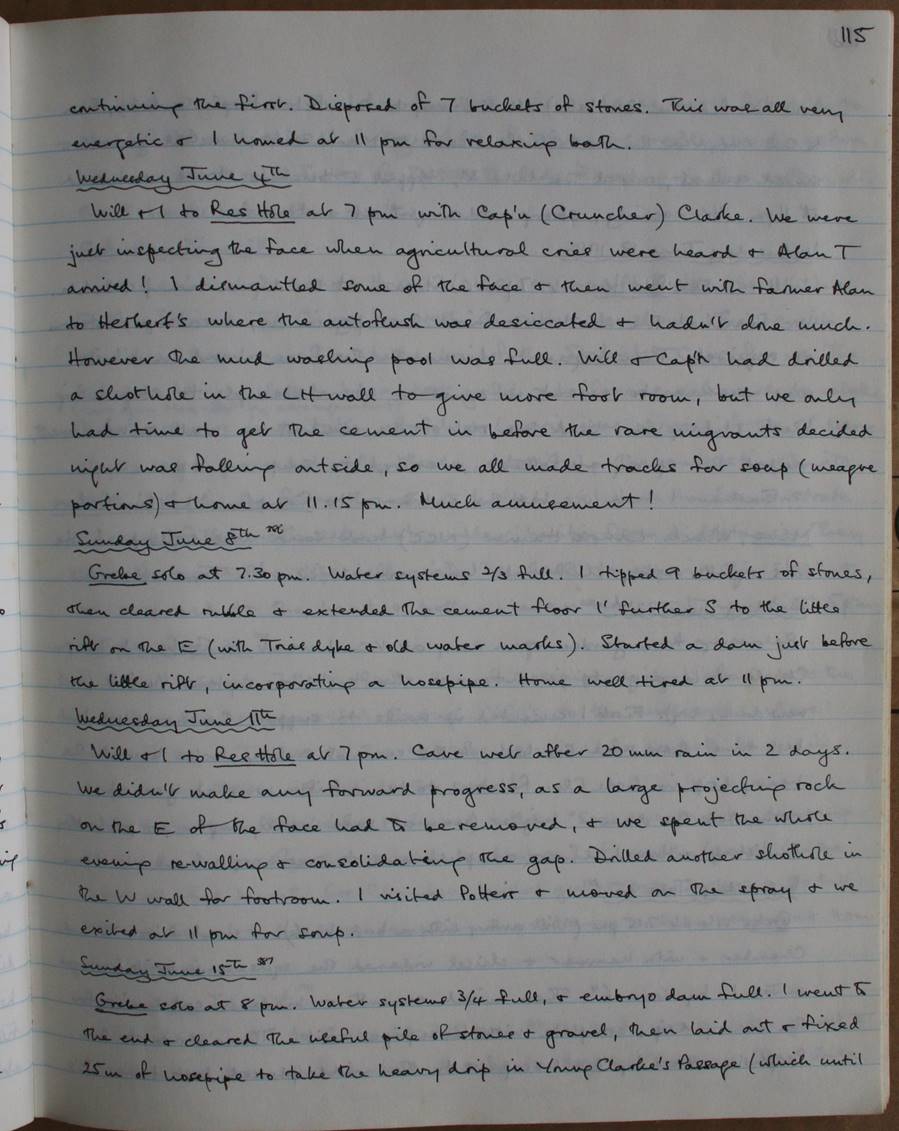 115
continuing the first. Disposed of 7 buckets of stones. This was all very
energetic & I homed at 11 pm for relaxing bath.
Wednesday June 4th
Will & I to Res Hole at 7 pm with Cap'n (Cruncher) Clarke. We were
just inspecting the face when agricultural cries were heard & Alan T
arrived! I dismantled some of the face & then went with farmer Alan
to Herbert's where the autoflush was desiccated & hadn't done much.
However the mud washing pool was full. Will & Cap'n had drilled
a shothole in the LH wall to give more foot room, but we only
had time to get the cement in before the rare migrants decided
night was falling outside, so we all made tracks for soup (meagre
portions) & home at 11.15 pm. Much amusement!
Sunday June 8th
Grebe solo at 7.30 pm. Water systems 2/3 full. I tipped 9 buckets of stones,
then cleared rubble & extended the cement floor 1' further S to the little
rift on the E (with Trias dyke & old water marks). Started a dam just before
the little rift, incorporating a hosepipe. Home well tired at 11 pm.
Wednesday June 11th
Will & I to Res Hole at 7 pm. Cave wet after 20 mm rain in 2 days.
We didn't make any forward progress, as a large projecting rock
on the E of the face had to be removed, & we spent the whole
evening re-walling & consolidating the gap. Drilled another shothole in
the W wall for footroom. I visited Potters & moved on the spray & we
exited at 11 pm for soup.
Sunday June 15th
Grebe solo at 8 pm. Water systems 3/4 full, & embryo dam full. I went to
the end & cleared the useful pile of stones & gravel, then laid out & fixed
25m of hosepipe to take the heavy drip in Young Clarke's Passage (which until